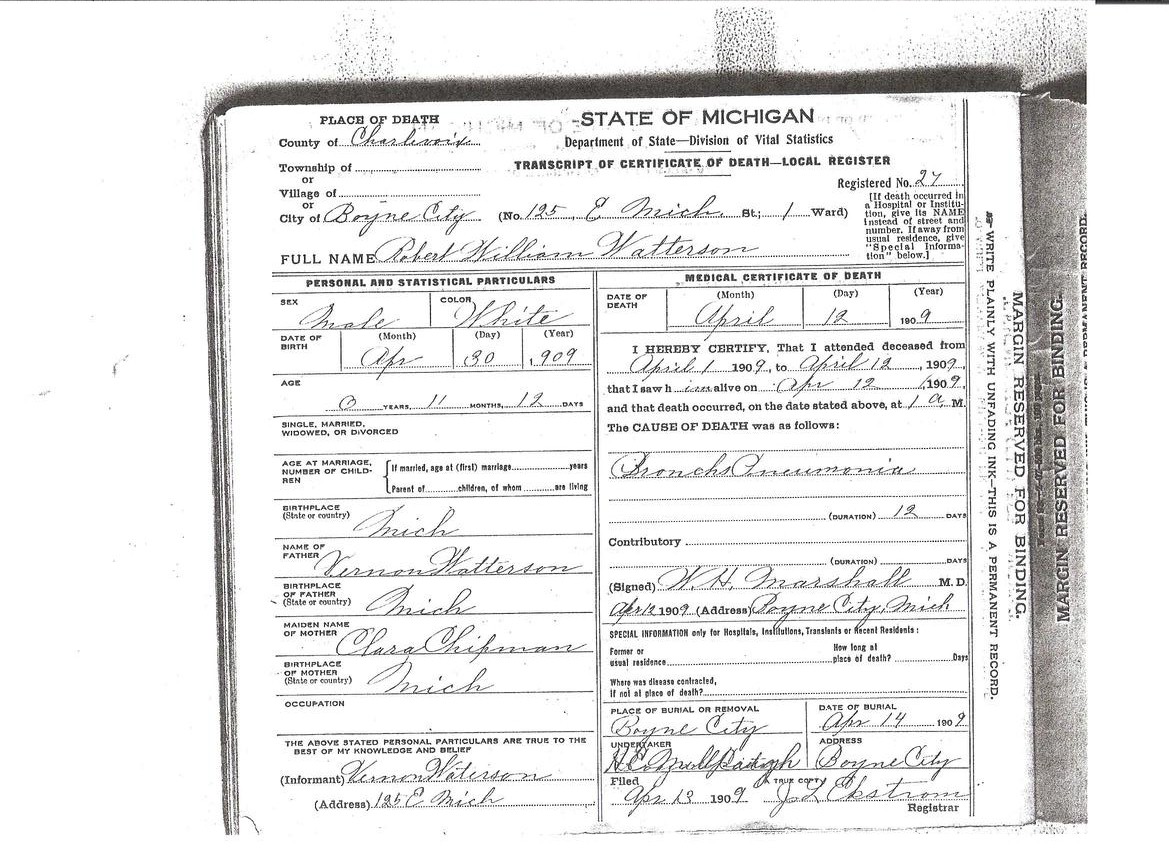 PLACE OF DEATH
County of Charlevoix
Township of
or
Village of
or
City of Boyne City (No. 125, E Mich. St.; 1 Ward)
STATE OF MICHIGAN
Department of State—Division of Vital Statistics
TRANSCRIPT OF CERTIFICATE OF DEATH—LOCAL REGISTER
Registered No. 27
[If death occurred in
a Hospital or Institu-
tion, give its NAME
instead of street and
number. If away from
usual residence, give
"Special Informa-
tion" below.]
FULL NAME Robert William Watterson
PERSONAL AND STATISTICAL PARTICULARS
SEX Male
COLOR White
DATE OF BIRTH
(Month) (Day) (Year)
Apr 30, 1909
AGE
0 YEARS, 11 MONTHS, 12 DAYS
SINGLE, MARRIED,
WIDOWED, OR DIVORCED
AGE AT MARRIAGE,
NUMBER OF CHILD-
REN
If married, age at (first) marriage years
Parent of children, of whom are living
BIRTHPLACE
(State or country) Mich
NAME OF
FATHER Vernon Watterson
BIRTHPLACE
OF FATHER
(State or country) Mich
MAIDEN NAME
OF MOTHER Clara Chipman
BIRTHPLACE
OF MOTHER
(State or country) Mich
OCCUPATION
THE ABOVE STATED PERSONAL PARTICULARS ARE TRUE TO THE
BEST OF MY KNOWLEDGE AND BELIEF
(Informant) Vernon Waterson
(Address) 125 E Mich
MEDICAL CERTIFICATE OF DEATH
DATE OF
DEATH
(Month) (Day) (Year)
April 12 1909
I HEREBY CERTIFY, That I attended deceased from
April 1 1909, to April 12, 1909,
that I saw h im alive on Apr 12, 1909,
and that death occurred, on the date stated above, at 1 a M.
The CAUSE OF DEATH was as follows:
Broncho Pneumonia
(DURATION) 12 DAYS
Contributory
(DURATION) DAYS
(Signed) W. H. Marshall M. D.
Apr 12 1909 (Address) Boyne City, Mich
SPECIAL INFORMATION only for Hospitals, Institutions, Transients or Recent Residents:
Former or
usual residence
How long at
place of death? Days
Where was disease contracted,
if not at place of death?
PLACE OF BURIAL OR REMOVAL
Boyne City
DATE OF BURIAL
Apr 14 1909
UNDERTAKER
ADDRESS
Boyne City
Filed
Apr 13 1909
A TRUE COPY
J L Ekstrom
Registrar
WRITE PLAINLY WITH UNFADING INK—THIS IS A PERMANENT RECORD.
MARGIN RESERVED FOR BINDING.
MARGIN RESERVED FOR BINDING.